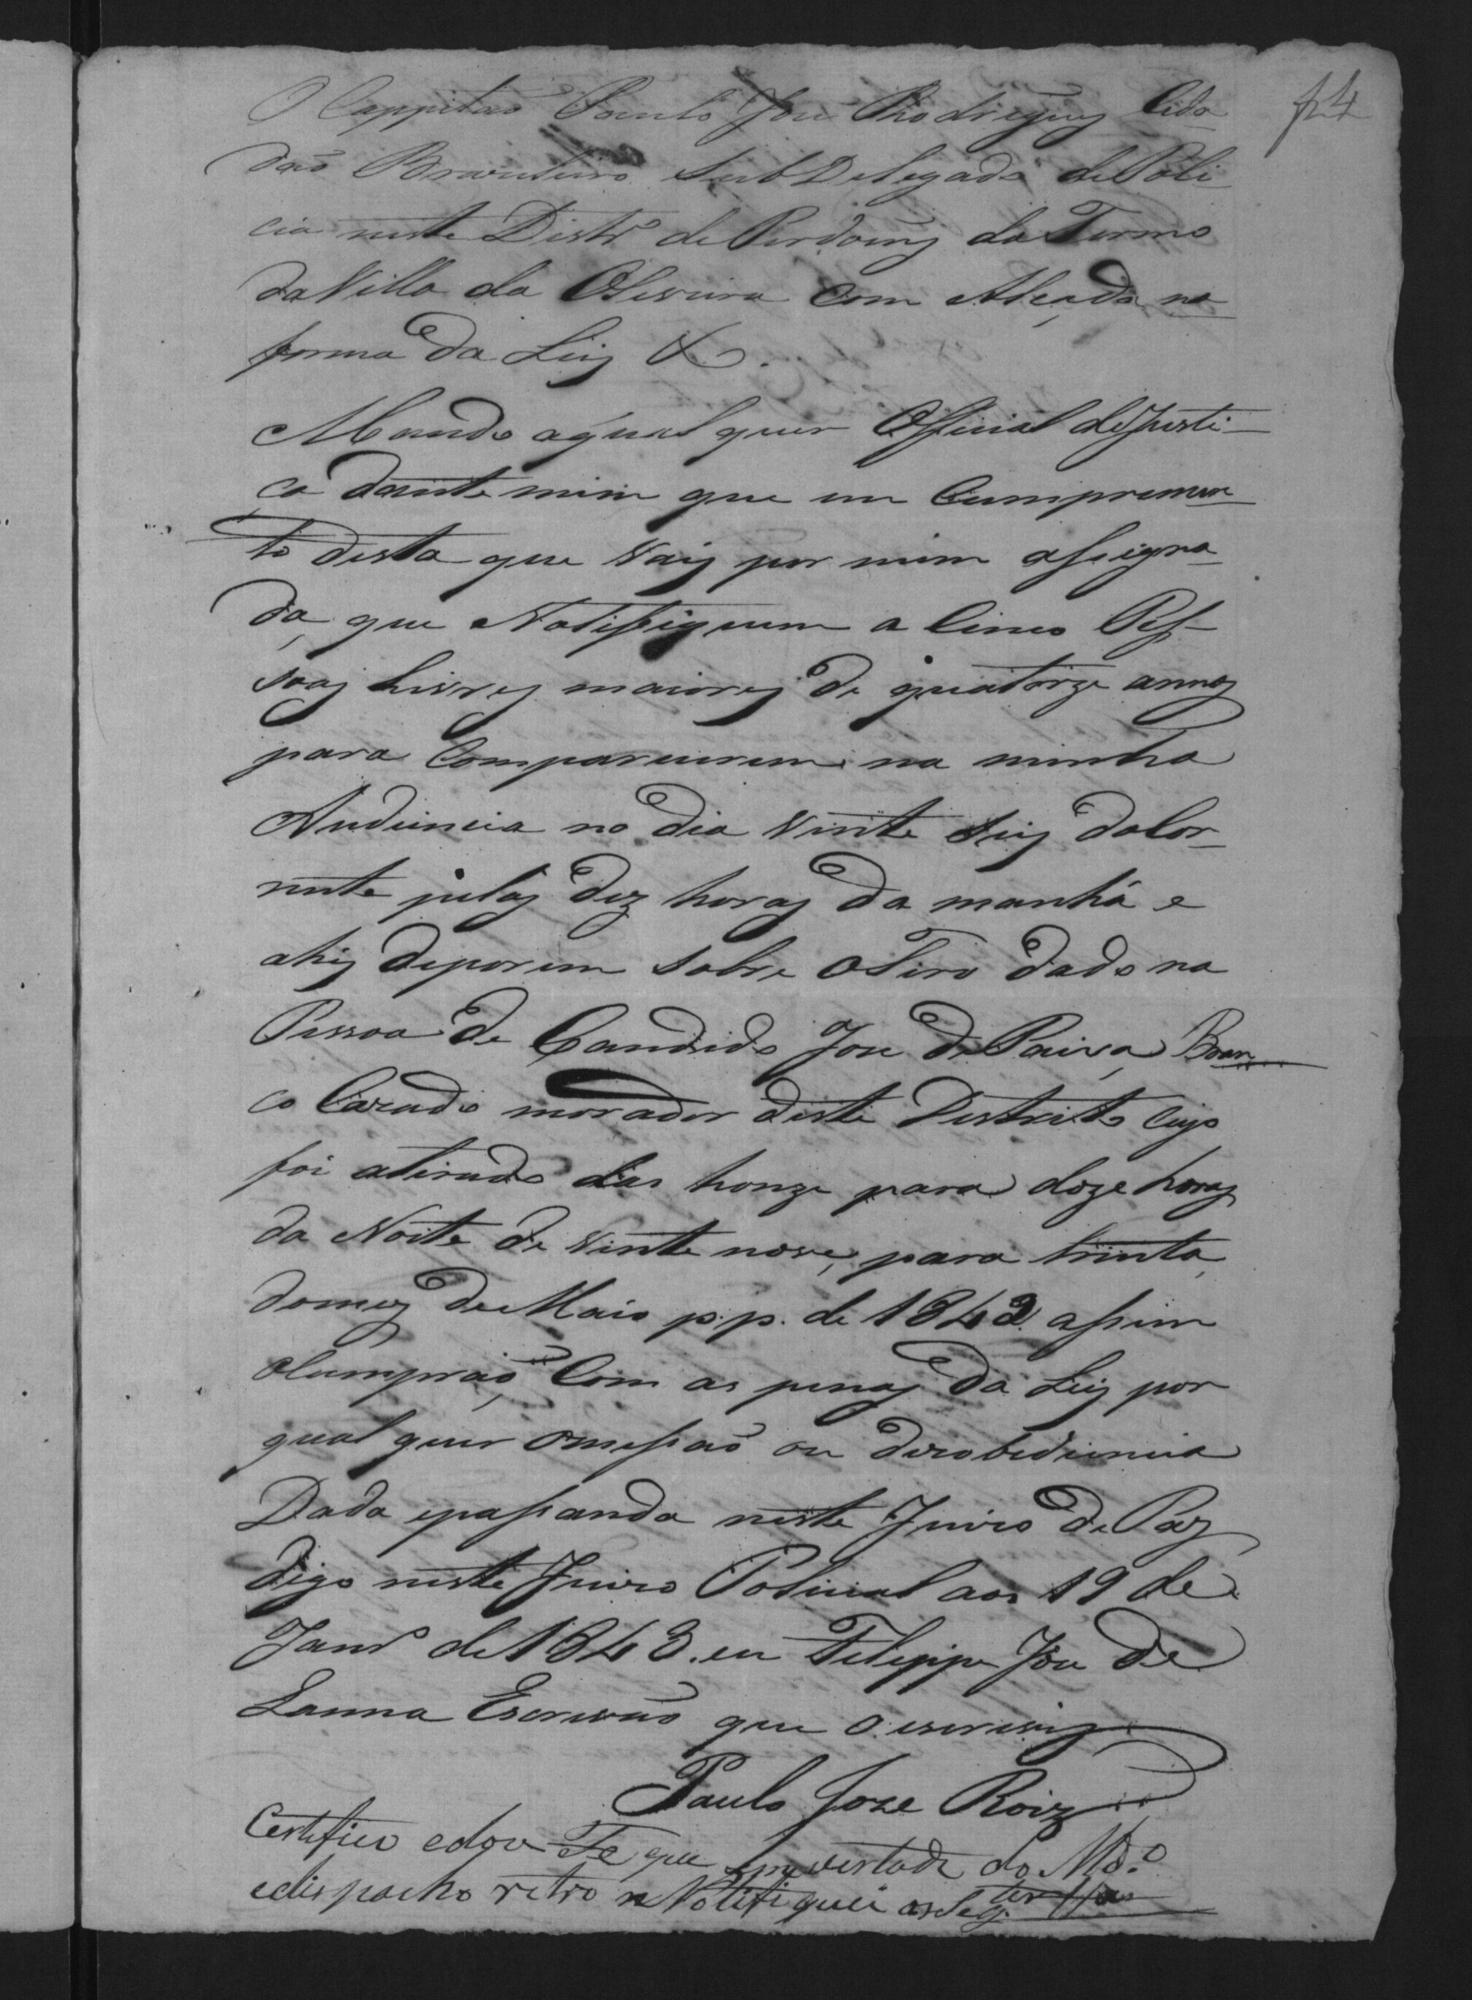 f 4
O Cappitão Paulo Joze Rodrigues Cida-
dão Brazileiro SubDelegado de Poli
cia neste Distr.º de Perdoens do Termo
da Villa da Oliveira Com Alçada na
forma da Ley &.
Mando aqual quer Official de Justi-
ça dante mim que em Cumprimen
to desta que vay por mim assigna-
da, que Notifiquem a Cinco Pes-
soas livres maiores de quatorze annos
para Comparecerem na minha
Audiencia no dia vinte seis do Cor-
rente pelas dez horas da manhã e
ahy deporem sobre o Tiro dado na
Pessoa de Candido Joze de Paiva, Bran
co Cazado morador deste Distrito Cujo
foi atirado das honze para doze horas
da Noite de Vinte nove, para trinta
do mez de Maio p.p. de 1842 assim
Cumprão, Com as penas da Ley por
qual quer omissão ou dezobediencia
Dada epassanda neste Juizo de Paz,
digo neste Juizo Policial aos 19 de
Janr.º de 1843. eu Felippe Joze de
Lanna Escrivão que o escrevy
Paulo Joze Roiz
Certifico edou Fe que em vertade do Md.º
edispacho retro Notifiquei as Seg.